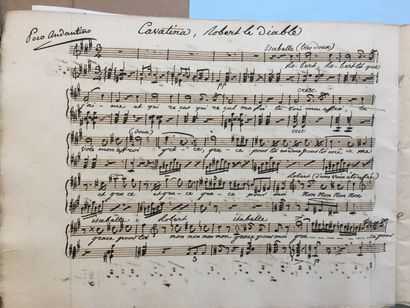 Poco Andantino
Cavatina, Robert le Diable
Isabelle (très doux)
Ro-bert, Ro-bert toi que
cresc
j'ai-me et qui re-çus ma foi tu vois mon effroi
pp
(doux)
cres
vois mon effroi grâ-ce, grâ-ce pour toi même pour toi
Robert (d'une voix
et grâ-ce et grâ-ce grâ-ce pour Non Non Non Non
isabelle Robert isabelle
grace pour toi non non non non grace pour moi gra